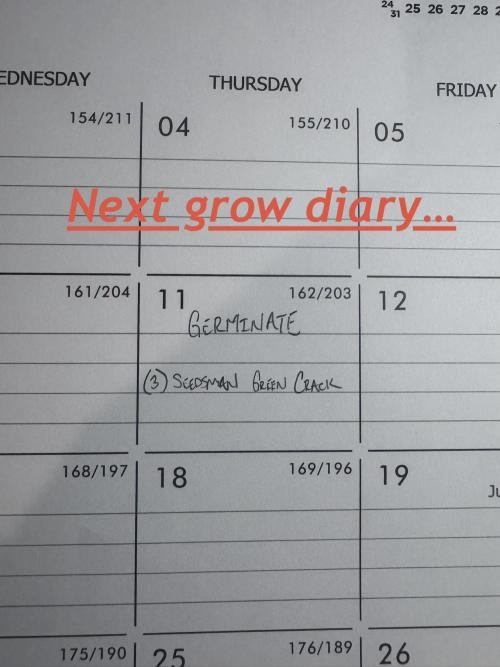 24
31 25 26 27 28
EDNESDAY THURSDAY FRIDAY
154/211 04 155/210 05
Next grow diary...
161/204 11 162/203 12
GERMINATE
(3) SEEDSMAN GREEN CRACK
168/197 18 169/196 19
Ju
175/190 25 176/189 26